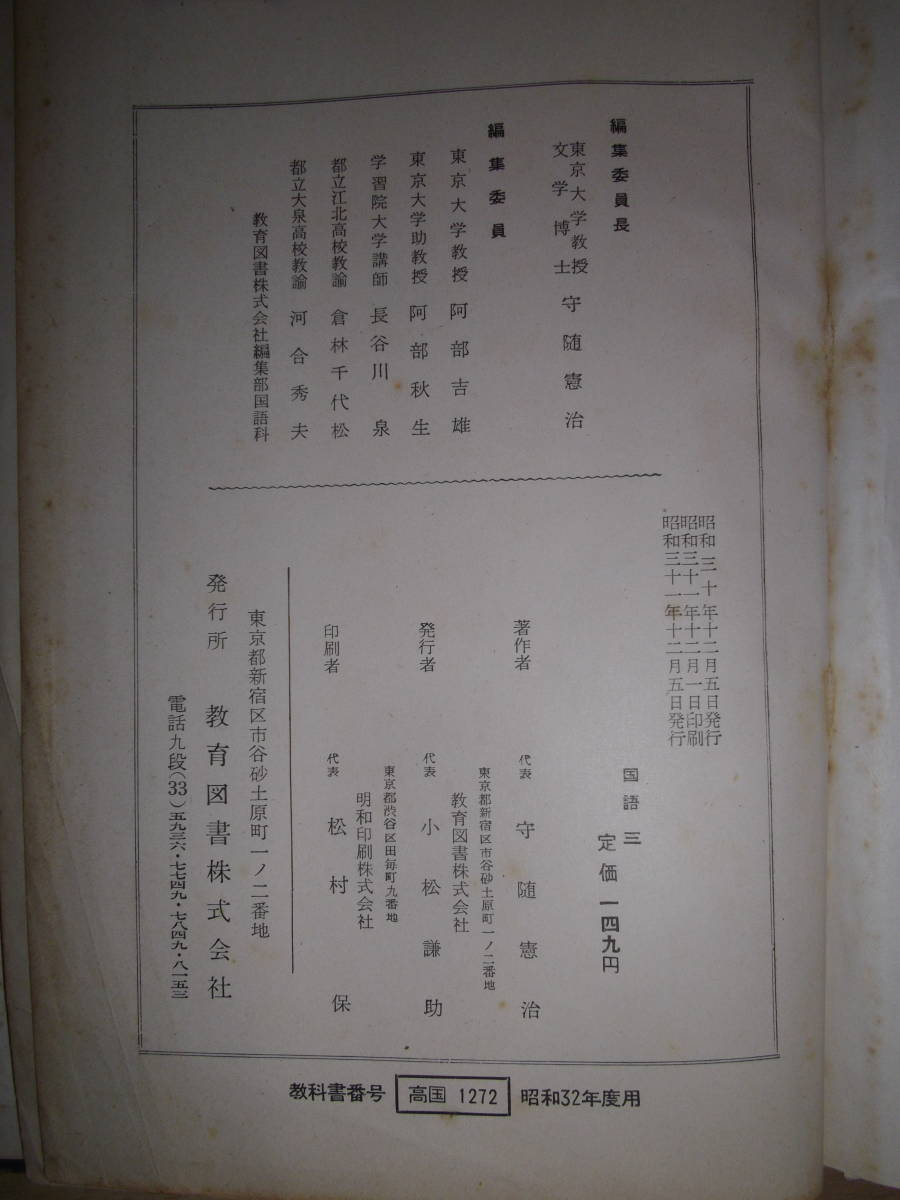 編集委員長
東京大学教授
文学博士 守随憲治
編集委員
東京大学教授 阿部吉雄
東京大学助教授 阿部秋生
学習院大学講師 長谷川泉
都立江北高校教諭 倉林千代松
都立大泉高校教諭 河合秀夫
教育図書株式会社編集部国語科
昭和三十年十二月五日発行
昭和三十一年十二月一日印刷
昭和三十一年十二月五日発行
国語三
定価 一四九円
著作者 代表 守随憲治
東京都新宿区市谷砂土原町一ノ二番地
教育図書株式会社
発行者 代表 小松謙助
東京都渋谷区田毎町九番地
明和印刷株式会社
印刷者 代表 松村保
東京都新宿区市谷砂土原町一ノ二番地
発行所 教育図書株式会社
電話九段(33)五九三六・七七四九・七八四九・八一五三
教科書番号 高国 1272 昭和32年度用